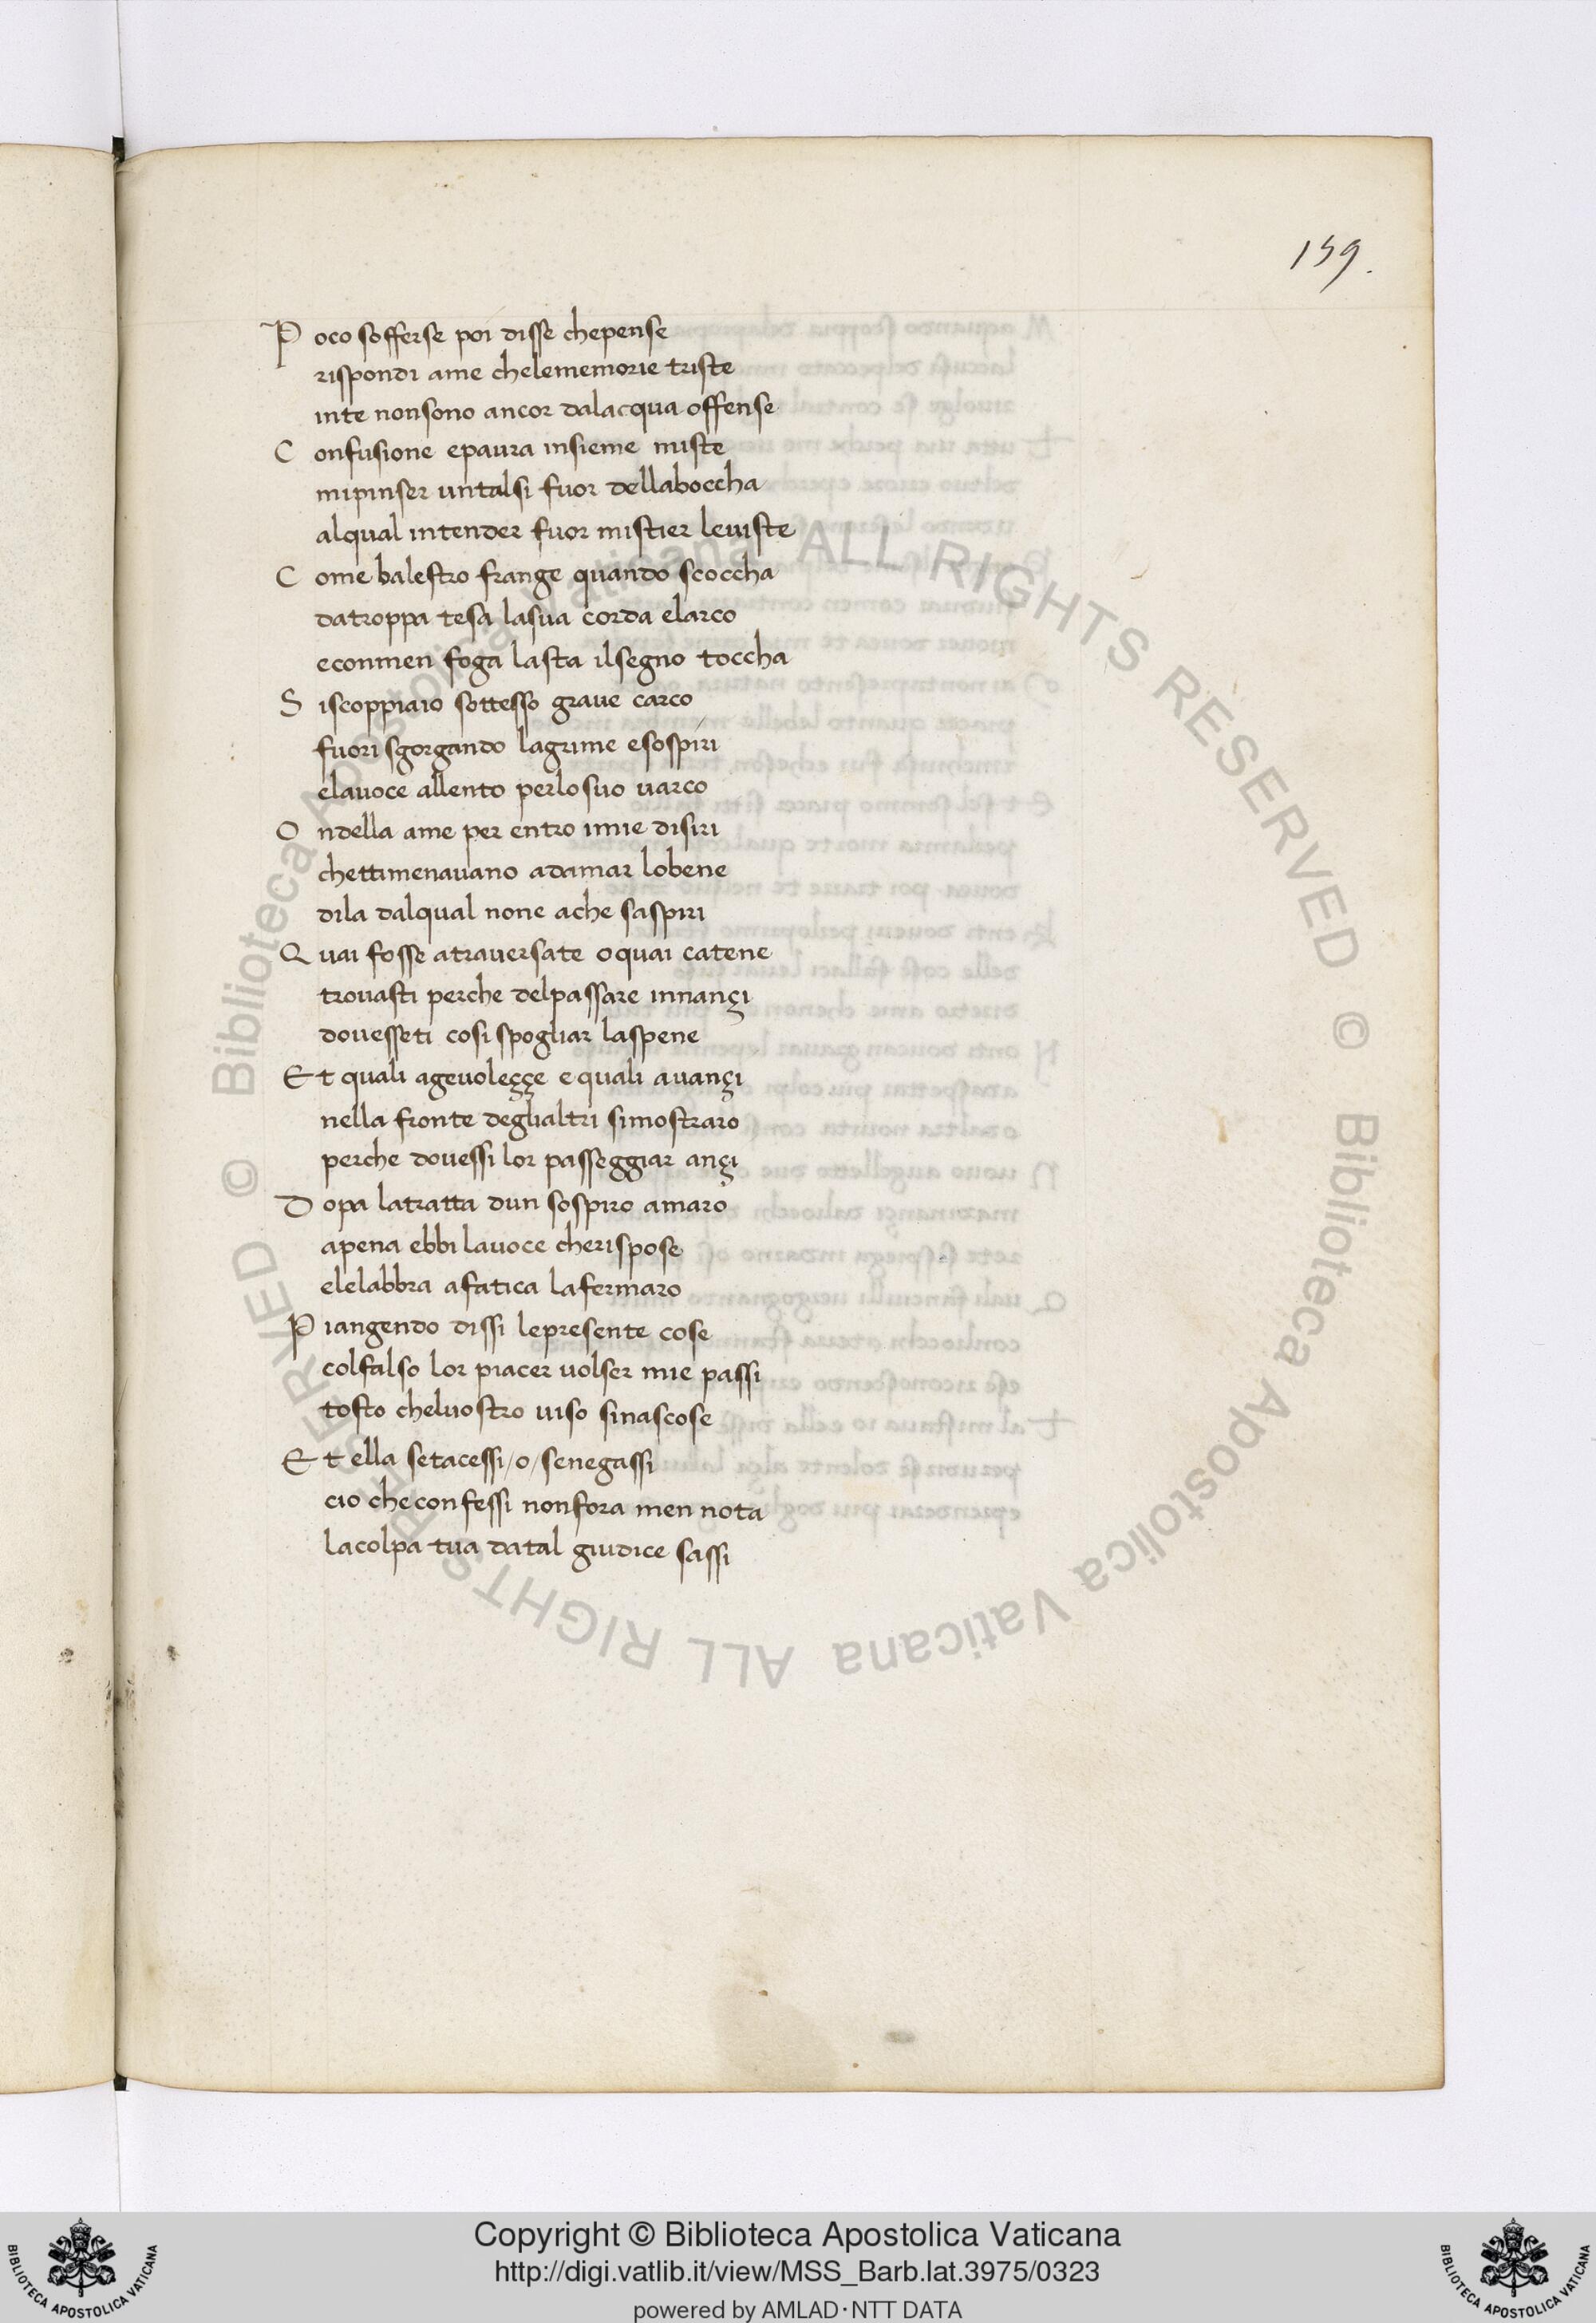 159.
Poco sofferse poi disse chepense
rispondi ame chelememorie triste
inte nonsono ancor dalacqua offense
Confusione epaura insieme miste
mipinser untalsi fuor dellaboccha
alqual intender fuor mistier leviste
Come balestro frange quando scoccha
datroppa tesa lasua corda elarco
econmen foga lasta ilsegno toccha
Siscoppiaio sottesso grave carco
fuori sgorgando lagrime esospiri
elavoce allento perlosuo varco
Ondella ame per entro imie disiri
chettimenavano adamar lobene
dila dalqual none ache saspiri
Quai fosse atraversate o quai catene
trovasti perche delpassare innançi
dovesseti cosi spogliar laspene
Et quali agevoleççe e quali avançi
nella fronte deglialtri simostraro
perche dovessi lor passeggiar ançi
Dopa latratta dun sospiro amaro
apena ebbi lavoce cherispose
elelabbra afatica lafermaro
Piangendo dissi lepresente cose
colfalso lor piacer volser mie passi
tosto chelvostro viso sinascose
Et ella setacessi/o/senegassi
cio checonfessi nonfora men nota
lacolpa tua datal giudice sassi
© Biblioteca Apostolica Vaticana ALL RIGHTS RESERVED © Biblioteca Apostolica Vaticana ALL RIGHTS RESERVED
Copyright © Biblioteca Apostolica Vaticana
http://digi.vatlib.it/view/MSS_Barb.lat.3975/0323
powered by AMLAD·NTT DATA
BIBLIOTECA APOSTOLICA VATICANA
BIBLIOTECA APOSTOLICA VATICANA